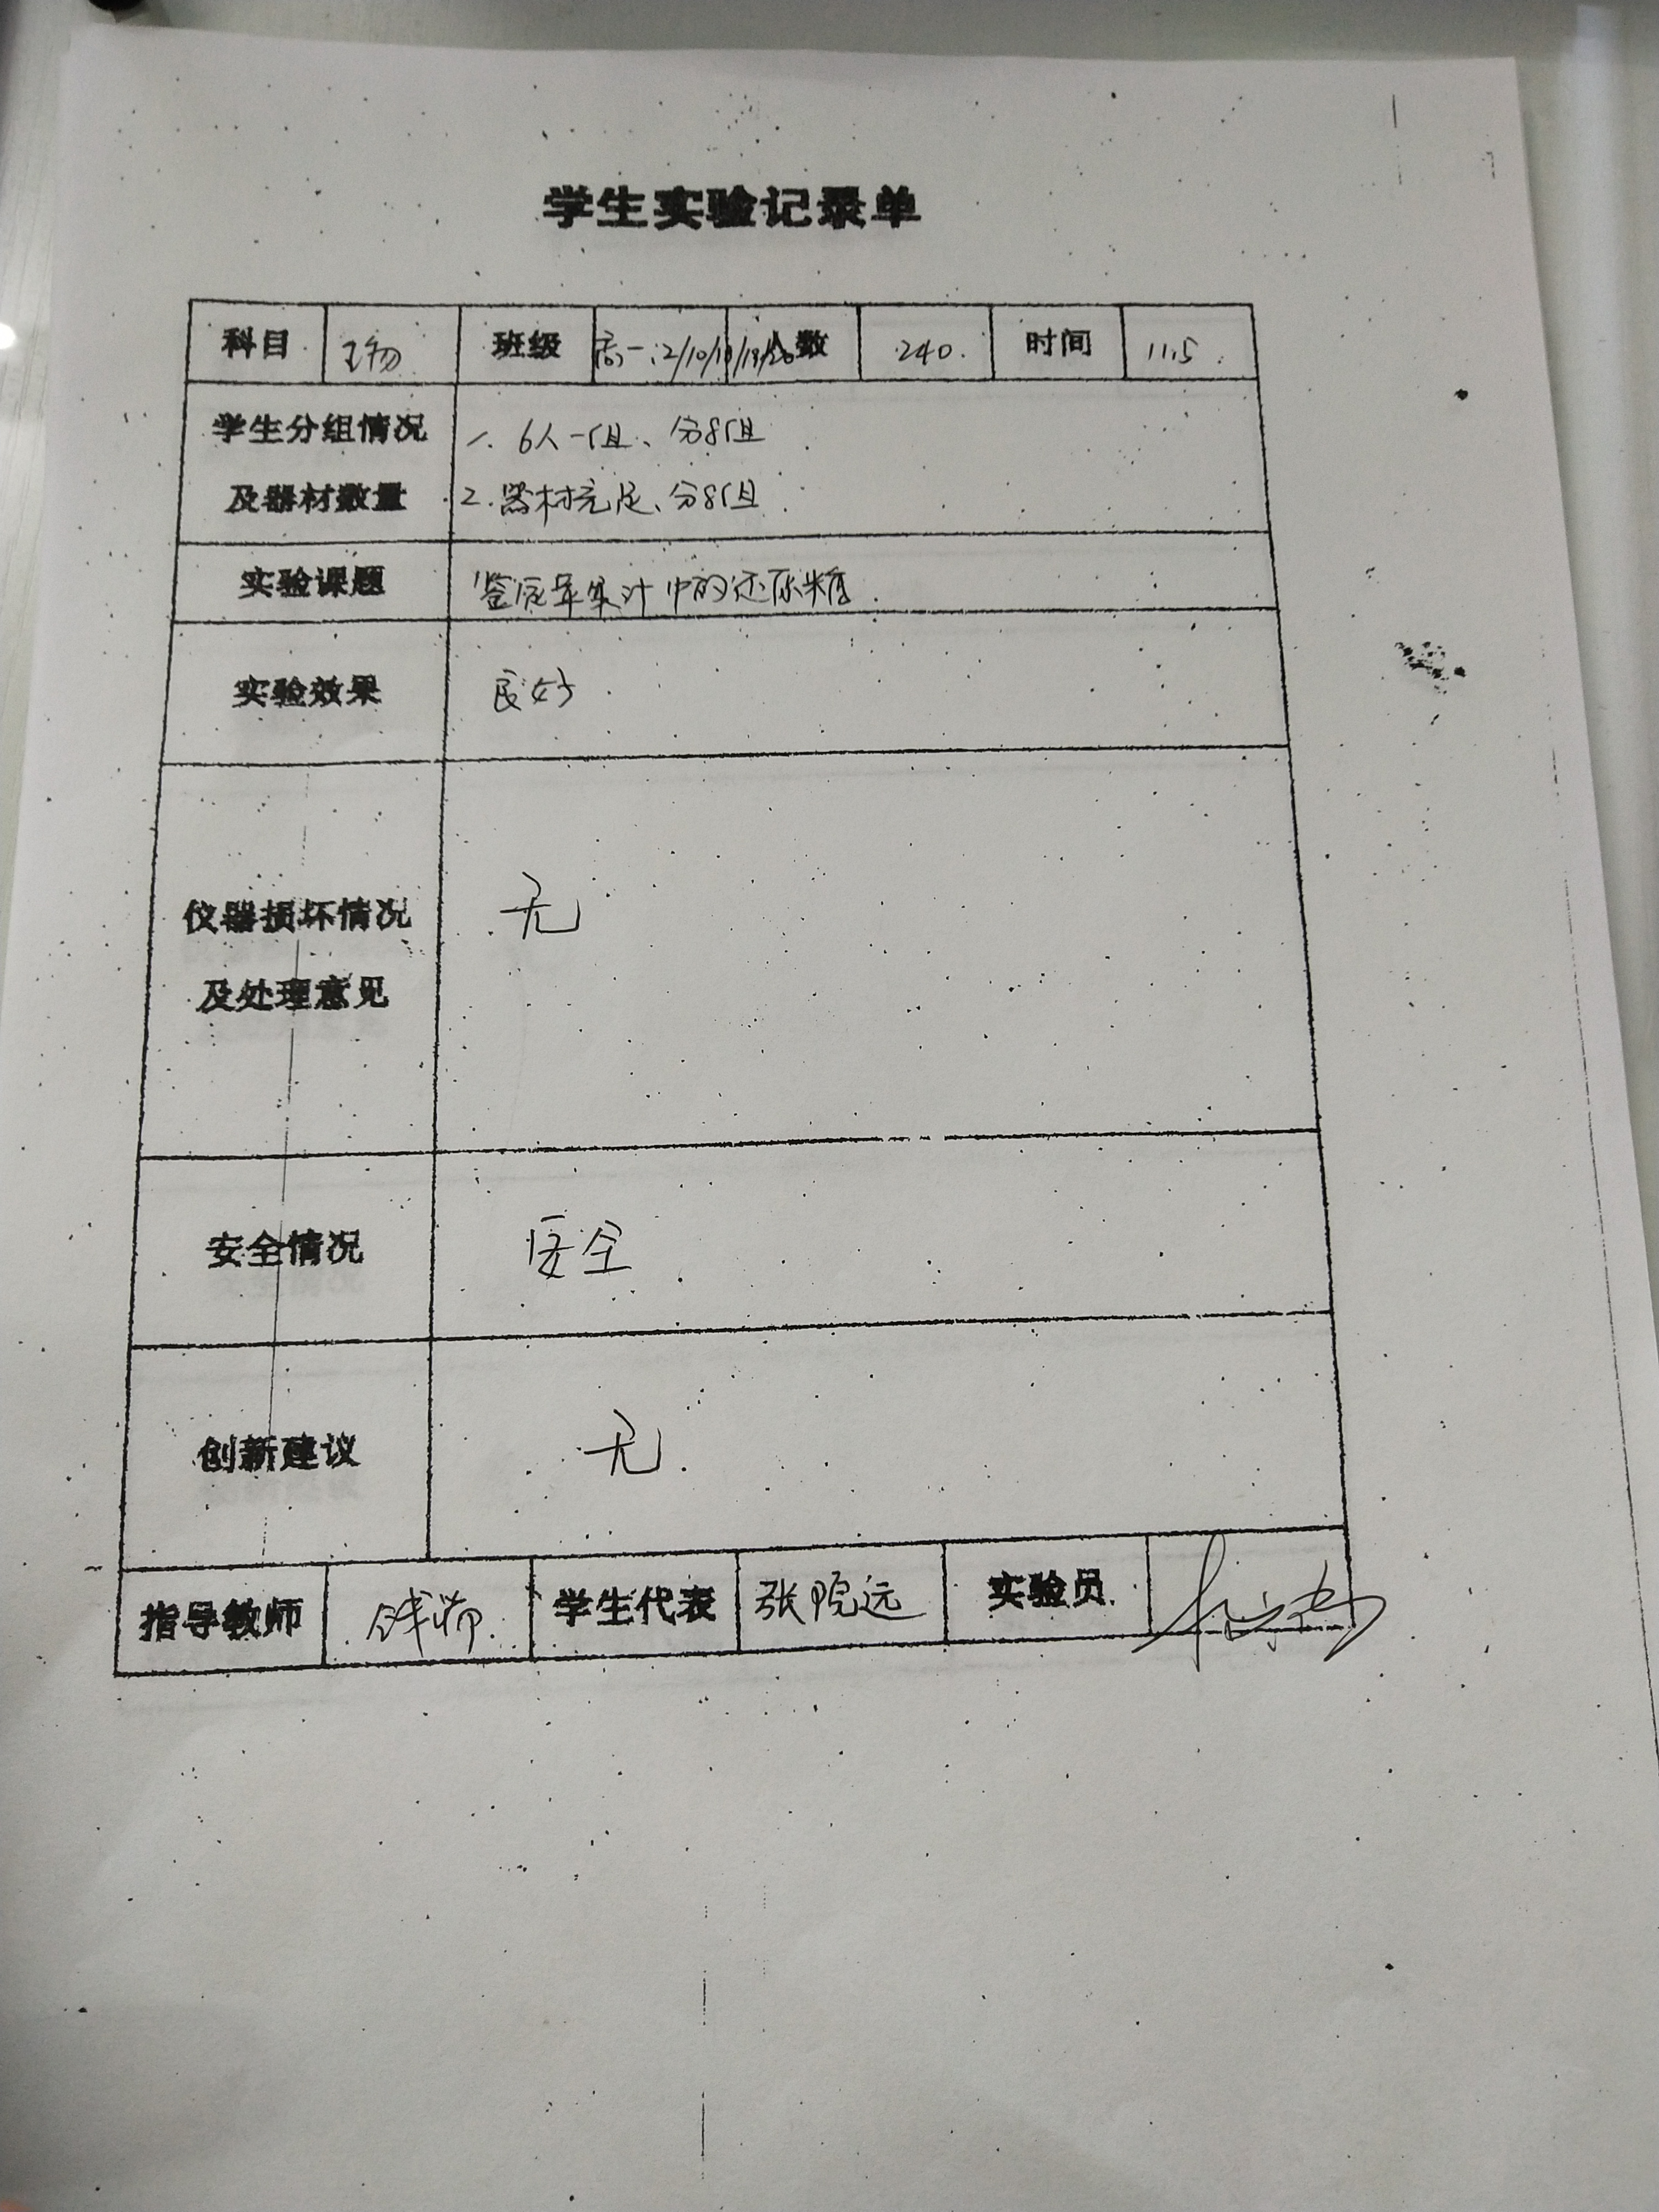 学生实验记录单
科目 生物 班级 高一 人数 240. 时间 11.5.
学生分组情况 1. 6人一组、分8组
及器材数量 2. 器材充足、分8组
实验课题 鉴定苹果汁中的还原糖.
实验效果 良好.
仪器损坏情况
及处理意见 无
安全情况 安全.
创新建议 无.
指导教师 学生代表 实验员